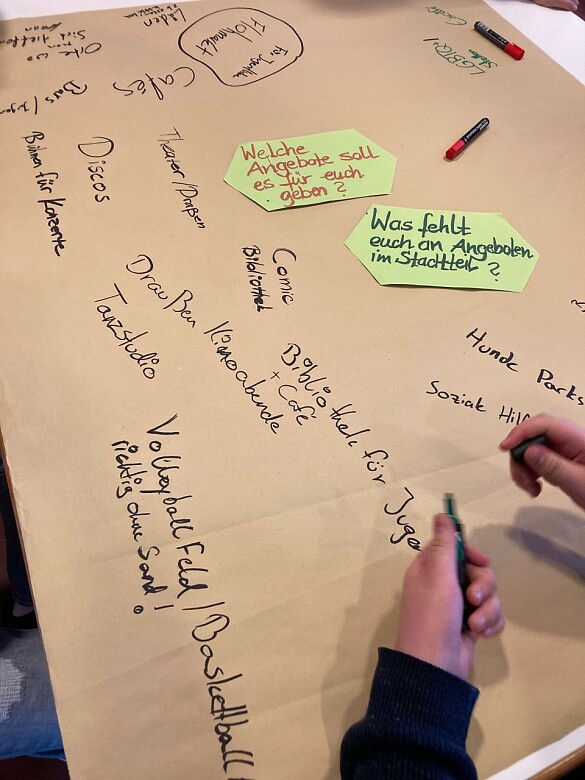 Läden
Flohmarkt
Für Jugendliche
Orte wo
man
sich treffen
kann
Cafés
Bars /
LGBTQ+
Welche
Angebote soll
es für euch
geben?
Was fehlt
euch an Angeboten
im Stadtteil?
Theater/Draßen
Discos
Bühnen für Konzerte
Comic
Bibliothek
Draußen
Kinoabende
Tanzstudio
Bibliothek für Juge
+ Café
Hunde Parks
Soziale Hilf
Volleyball Feld / Basketball
richtig ohne Sand!